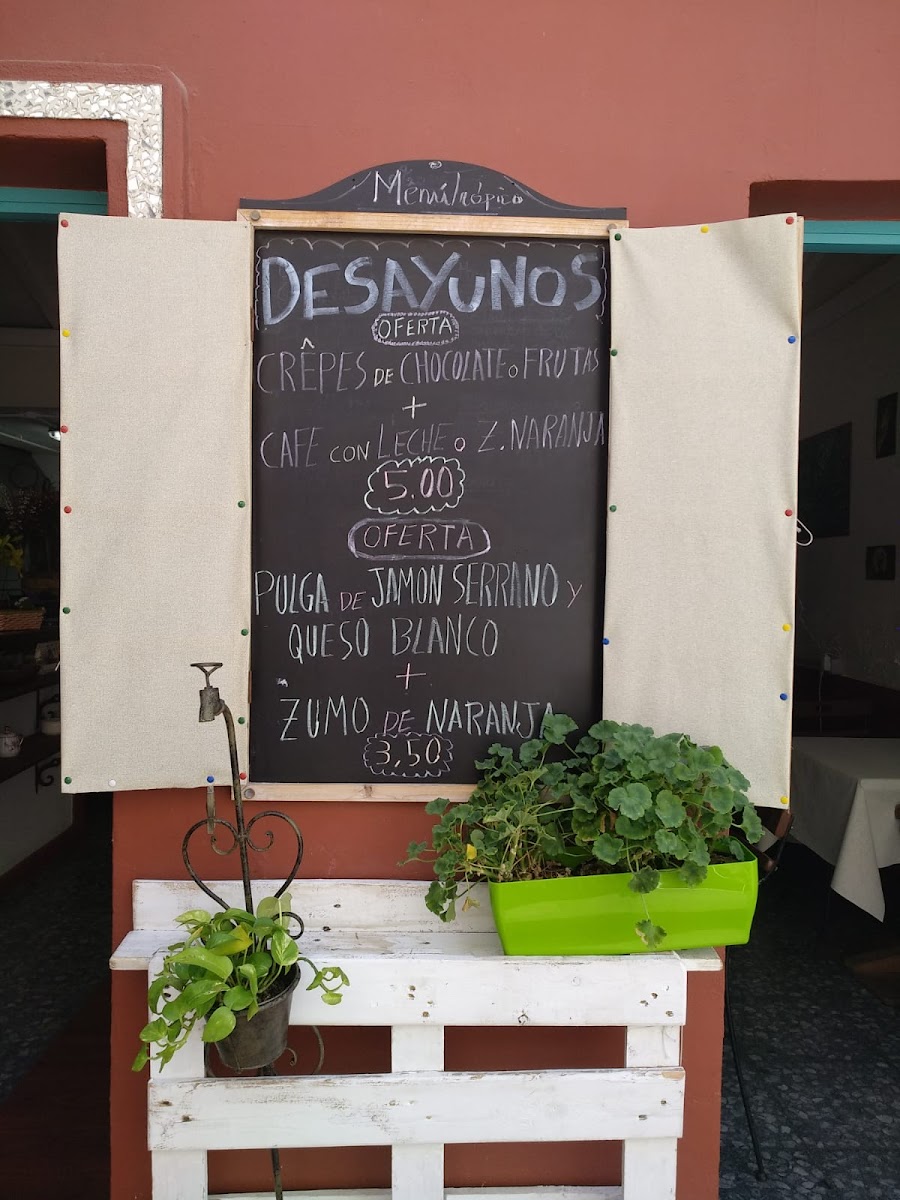 Menútrópico
DESAYUNOS
OFERTA
CRÊPES DE CHOCOLATE O FRUTAS
+
CAFE CON LECHE O Z. NARANJA
5.00
OFERTA
PULGA DE JAMON SERRANO Y
QUESO BLANCO
+
ZUMO DE NARANJA
3,50